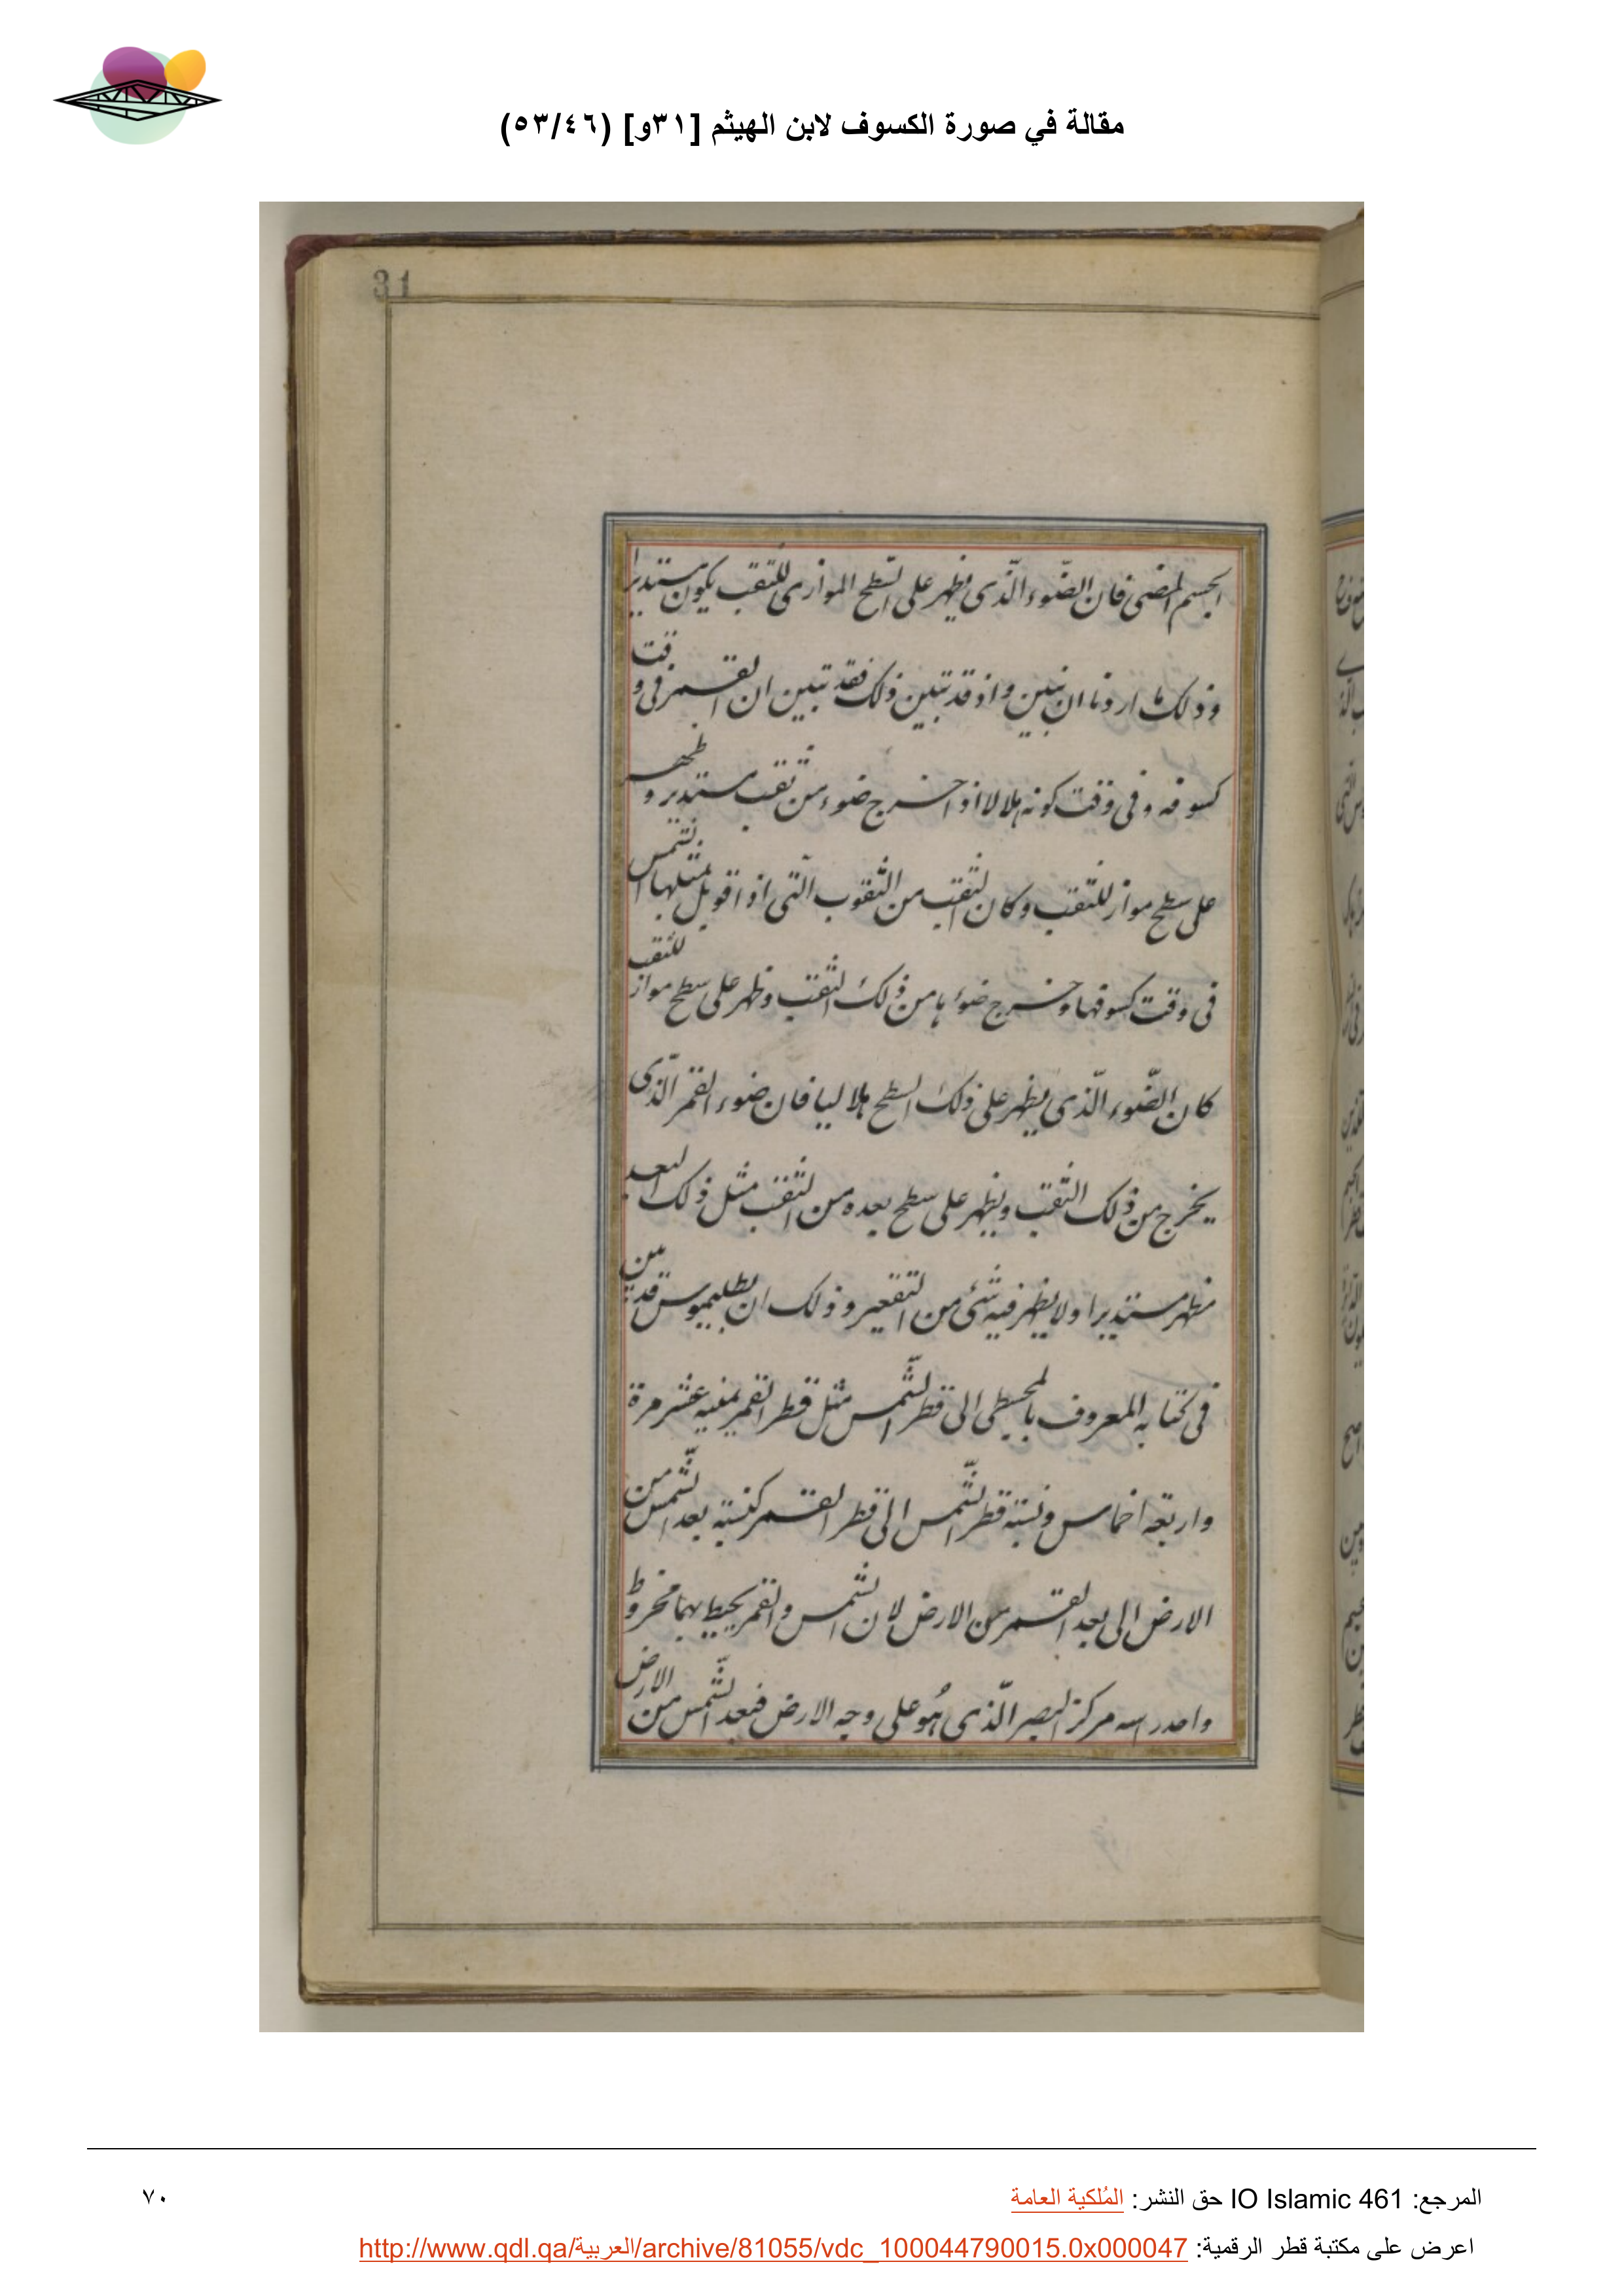 مقالة في صورة الكسوف لابن الهيثم [٣١و] (٥٣/٤٦)
31
الجسم المضئ فان الضّوء الّذى يظهر على السّطح الموازى للثّقب يكون مستديرا
وذلك ما اردنا ان نبين واذ قد تبين ذلك فقد تبين ان القمر فى وقت
كسوفه وفى وقت كونه هلالا اذا خرج ضوءه من ثقب مستدير وظهر
على سطح مواز للثقب وكان الثقب من الثّقوب الّتى اذا قوبل بمثلها الشمس
فى وقت كسوفها وخرج ضوءها من ذلك الثقب وظهر على سطح مواز للثقب
كان الضّوء الّذى يظهر على ذلك السطح هلاليا فان ضوء القمر الّذى
يخرج من ذلك الثقب ويظهر على سطح بعده من الثقب مثل ذلك البعد
يظهر مستديرا ولا يظهر فيه شئ من التقعير وذلك ان بطلميوس قد بين
فى كتابه المعروف بالمجسطى الى قطر الشّمس مثل قطر القمر ثمنيه عشر مرة
واربعة اخماس ونسبة قطر الشّمس الى قطر القمر كنسبة بعد الشّمس من
الارض الى بعد القمر من الارض لان الشمس والقمر يحيط بهما مخروط
واحد راسه مركز البصر الّذى هُو على وجه الارض فبعد الشّمس من الارض
المرجع: IO Islamic 461 حق النشر: المُلكية العامة
٧٠
اعرض على مكتبة قطر الرقمية: http://www.qdl.qa/العربية/archive/81055/vdc_100044790015.0x000047